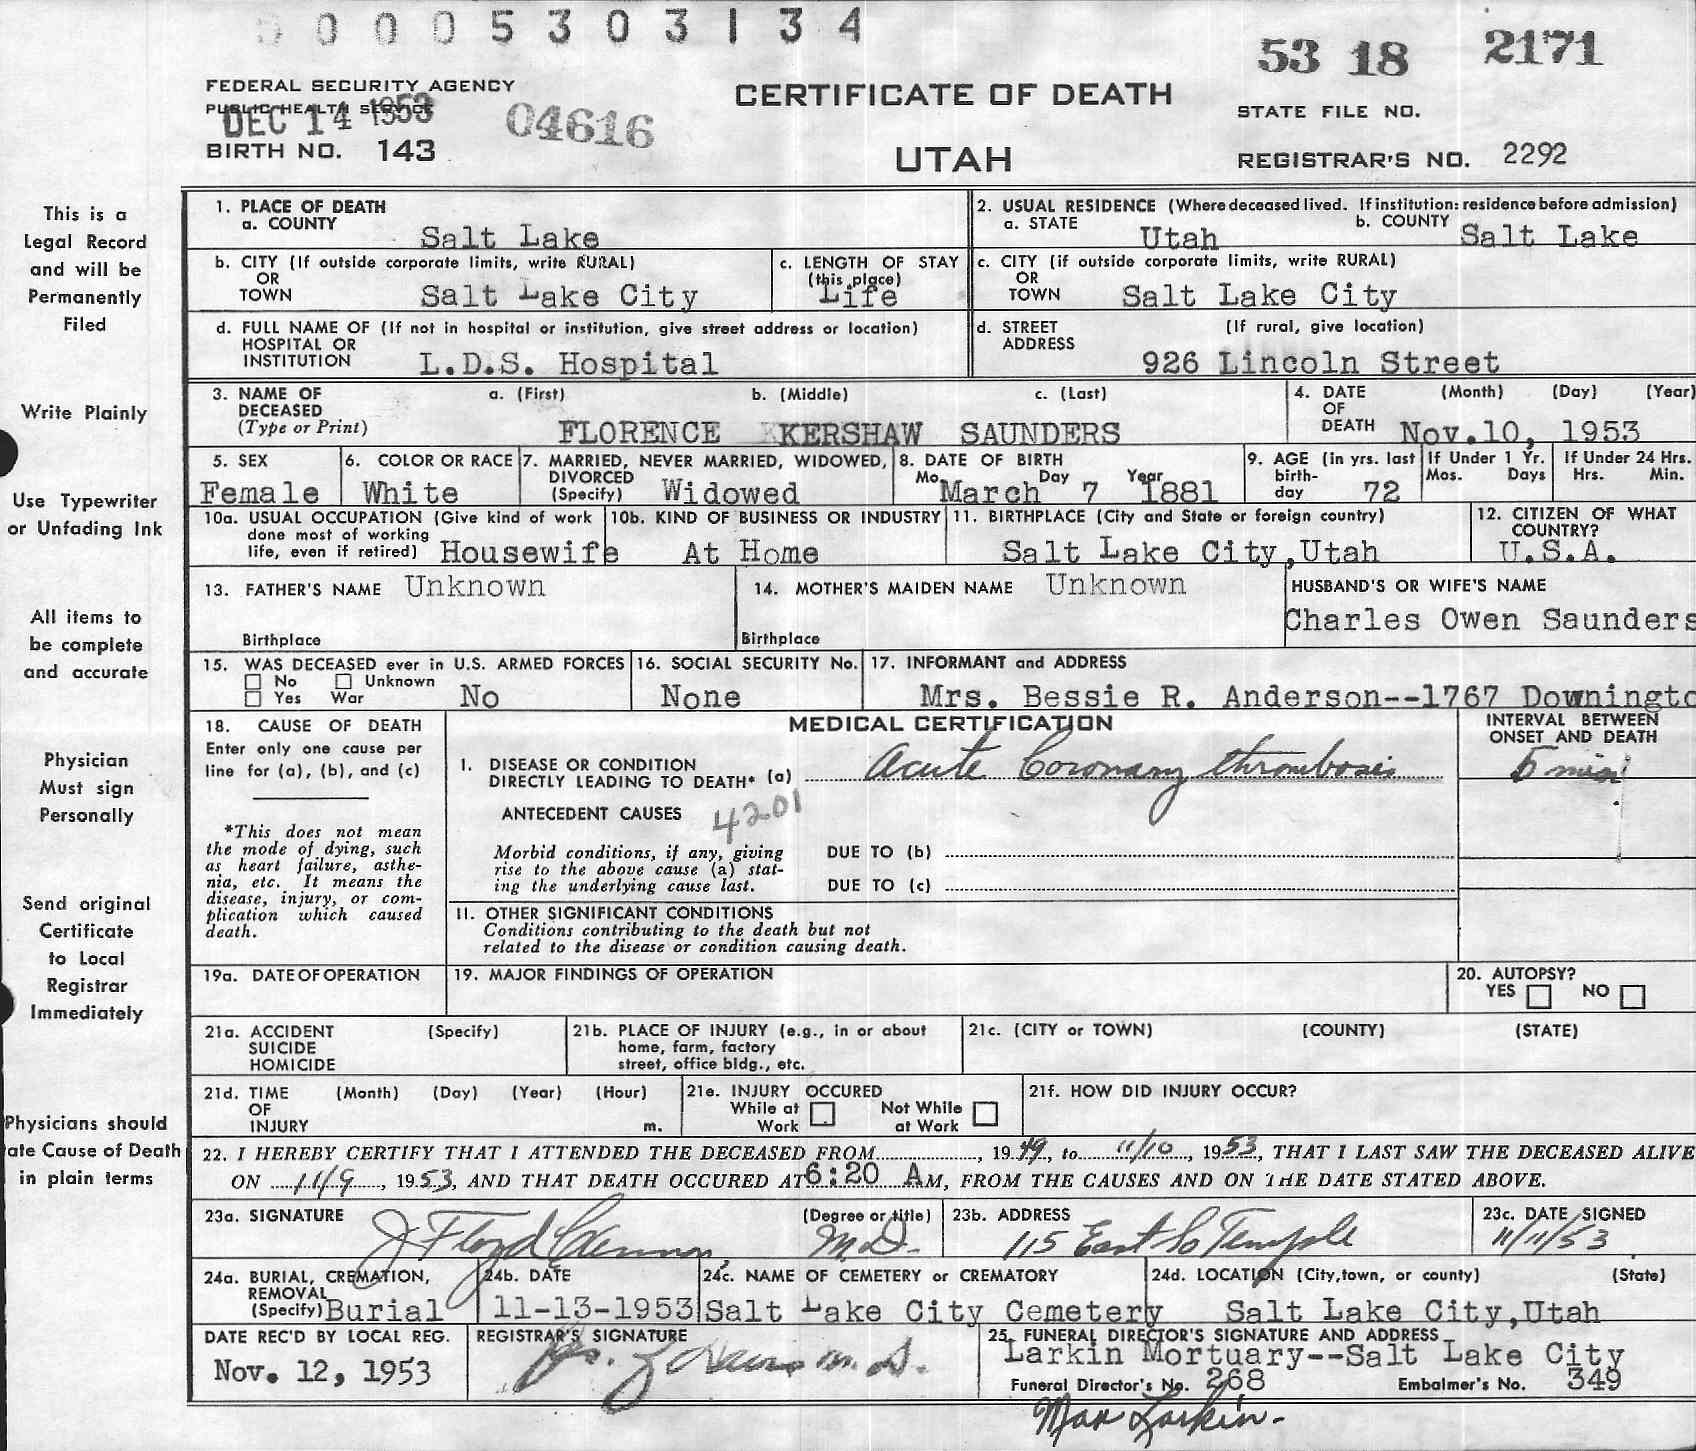 0005303134
53 18 2171
FEDERAL SECURITY AGENCY
PUBLIC HEALTH SERVICE
DEC 14 1953
04616
BIRTH NO. 143
CERTIFICATE OF DEATH
UTAH
STATE FILE NO.
REGISTRAR'S NO. 2292
This is a
Legal Record
and will be
Permanently
Filed
Write Plainly
Use Typewriter
or Unfading Ink
All items to
be complete
and accurate
Physician
Must sign
Personally
Send original
Certificate
to Local
Registrar
Immediately
Physicians should
ate Cause of Death
in plain terms
1. PLACE OF DEATH
a. COUNTY Salt Lake
2. USUAL RESIDENCE (Where deceased lived. If institution: residence before admission)
a. STATE Utah b. COUNTY Salt Lake
b. CITY (If outside corporate limits, write RURAL)
OR
TOWN Salt Lake City
c. LENGTH OF STAY
(this place)
Life
c. CITY (if outside corporate limits, write RURAL)
OR
TOWN Salt Lake City
d. FULL NAME OF (If not in hospital or institution, give street address or location)
HOSPITAL OR
INSTITUTION L.D.S. Hospital
d. STREET (If rural, give location)
ADDRESS
926 Lincoln Street
3. NAME OF a. (First) b. (Middle) c. (Last)
DECEASED
(Type or Print) FLORENCE KERSHAW SAUNDERS
4. DATE (Month) (Day) (Year)
OF
DEATH Nov.10, 1953
5. SEX
Female
6. COLOR OR RACE
White
7. MARRIED, NEVER MARRIED, WIDOWED,
DIVORCED
(Specify) Widowed
8. DATE OF BIRTH
Mo. Day Year
March 7 1881
9. AGE (in yrs. last
birth-
day 72
If Under 1 Yr.
Mos. Days
If Under 24 Hrs.
Hrs. Min.
10a. USUAL OCCUPATION (Give kind of work
done most of working
life, even if retired) Housewife
10b. KIND OF BUSINESS OR INDUSTRY
At Home
11. BIRTHPLACE (City and State or foreign country)
Salt Lake City,Utah
12. CITIZEN OF WHAT
COUNTRY?
U.S.A.
13. FATHER'S NAME Unknown
Birthplace
14. MOTHER'S MAIDEN NAME Unknown
Birthplace
HUSBAND'S OR WIFE'S NAME
Charles Owen Saunders
15. WAS DECEASED ever in U.S. ARMED FORCES
No Unknown
Yes War No
16. SOCIAL SECURITY No.
None
17. INFORMANT and ADDRESS
Mrs. Bessie R. Anderson--1767 Downingto
18. CAUSE OF DEATH
Enter only one cause per
line for (a), (b), and (c)
*This does not mean
the mode of dying, such
as heart failure, asthe-
nia, etc. It means the
disease, injury, or com-
plication which caused
death.
MEDICAL CERTIFICATION
INTERVAL BETWEEN
ONSET AND DEATH
I. DISEASE OR CONDITION
DIRECTLY LEADING TO DEATH* (a) Acute Coronary thrombosis 5 min
ANTECEDENT CAUSES 4201
Morbid conditions, if any, giving
rise to the above cause (a) stat-
ing the underlying cause last.
DUE TO (b)
DUE TO (c)
II. OTHER SIGNIFICANT CONDITIONS
Conditions contributing to the death but not
related to the disease or condition causing death.
19a. DATE OF OPERATION
19. MAJOR FINDINGS OF OPERATION
20. AUTOPSY?
YES NO
21a. ACCIDENT (Specify)
SUICIDE
HOMICIDE
21b. PLACE OF INJURY (e.g., in or about
home, farm, factory
street, office bldg., etc.
21c. (CITY or TOWN) (COUNTY) (STATE)
21d. TIME (Month) (Day) (Year) (Hour)
OF
INJURY m.
21e. INJURY OCCURED
While at Work Not While at Work
21f. HOW DID INJURY OCCUR?
22. I HEREBY CERTIFY THAT I ATTENDED THE DECEASED FROM , 1949, to 11/10, 1953, THAT I LAST SAW THE DECEASED ALIVE
ON 11/9, 1953, AND THAT DEATH OCCURED AT 6:20 AM, FROM THE CAUSES AND ON THE DATE STATED ABOVE.
23a. SIGNATURE (Degree or title)
J Floyd Cannon M.D.
23b. ADDRESS
115 East So Temple
23c. DATE SIGNED
11/11/53
24a. BURIAL, CREMATION,
REMOVAL
(Specify) Burial
24b. DATE
11-13-1953
24c. NAME OF CEMETERY or CREMATORY
Salt Lake City Cemetery
24d. LOCATION (City,town, or county) (State)
Salt Lake City,Utah
DATE REC'D BY LOCAL REG.
Nov. 12, 1953
REGISTRAR'S SIGNATURE
M.D.
25. FUNERAL DIRECTOR'S SIGNATURE AND ADDRESS
Larkin Mortuary--Salt Lake City
Funeral Director's No. 268 Embalmer's No. 349
Max Larkin